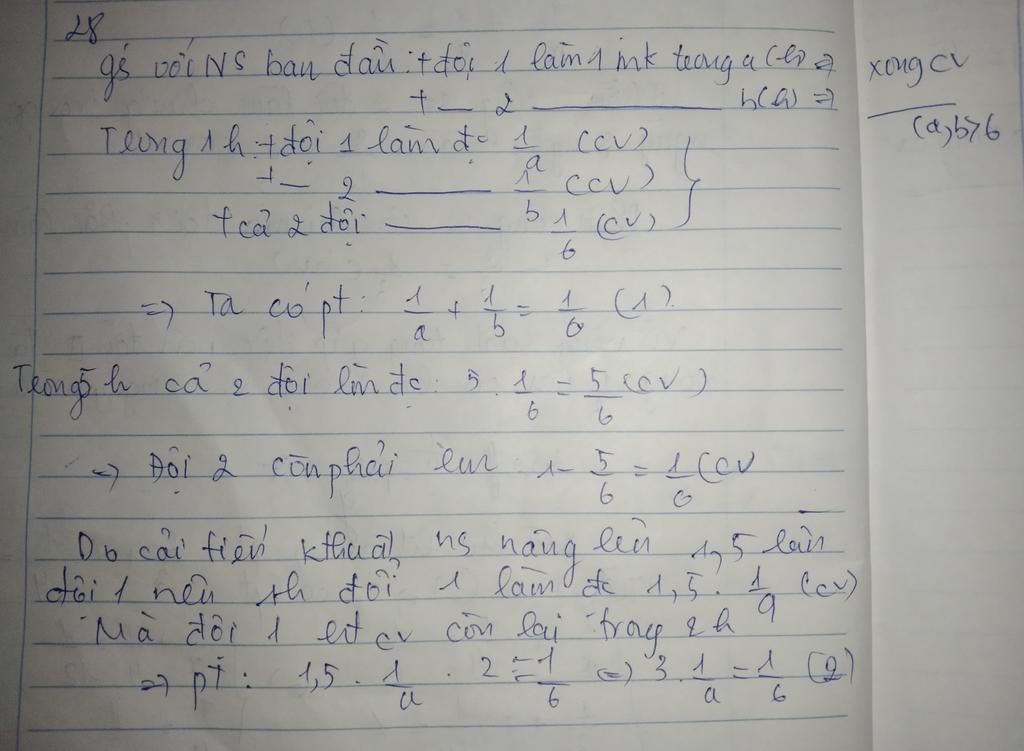 28
gs với NS ban đầu: + đội 1 làm 1 mk trong a (h) => xong cv
+ — 2 ——— b(h) => ———
(a,b>6
Trong 1h: + đội 1 làm đc 1/a (cv)
+ — 2 ——— 1/b (cv)
+ cả 2 đội ——— 1/6 (cv)
=> Ta có pt: 1/a + 1/b = 1/6 (1).
Trong 5h cả 2 đội làm đc: 5.1/6 = 5/6 (cv)
=> Đội 2 còn phải làm 1 - 5/6 = 1/6 (cv
Do cải tiến kthuật, ns nâng lên 1,5 lần
đội 1 nên 1h đội 1 làm đc 1,5.1/a (cv)
Mà đội 1 cv còn lại trong 2h
=> pt: 1,5 . 1/a . 2 = 1/6 (=) 3.1/a = 1/6 (2)